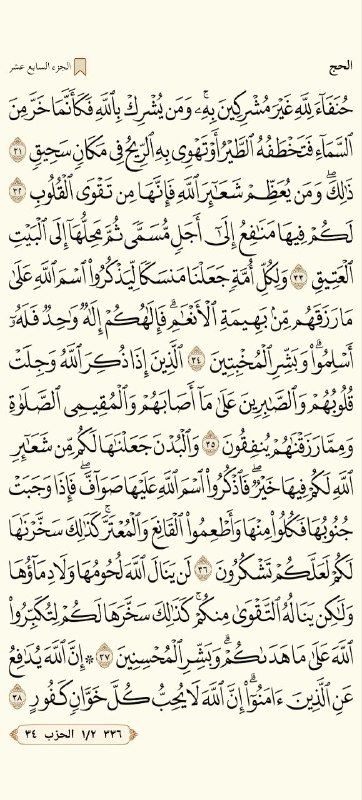 الحج
الجزء السابع عشر
حُنَفَآءَ لِلَّهِ غَيْرَ مُشْرِكِينَ بِهِۦۚ وَمَن يُشْرِكْ بِٱللَّهِ فَكَأَنَّمَا خَرَّ مِنَ
ٱلسَّمَآءِ فَتَخْطَفُهُ ٱلطَّيْرُ أَوْ تَهْوِى بِهِ ٱلرِّيحُ فِى مَكَانٍ سَحِيقٍ ٣١
ذَٰلِكَۖ وَمَن يُعَظِّمْ شَعَٰٓئِرَ ٱللَّهِ فَإِنَّهَا مِن تَقْوَى ٱلْقُلُوبِ ٣٢
لَكُمْ فِيهَا مَنَٰفِعُ إِلَىٰٓ أَجَلٍ مُّسَمًّى ثُمَّ مَحِلُّهَآ إِلَى ٱلْبَيْتِ
ٱلْعَتِيقِ ٣٣ وَلِكُلِّ أُمَّةٍ جَعَلْنَا مَنسَكًا لِّيَذْكُرُوا۟ ٱسْمَ ٱللَّهِ عَلَىٰ
مَا رَزَقَهُم مِّنۢ بَهِيمَةِ ٱلْأَنْعَٰمِۗ فَإِلَٰهُكُمْ إِلَٰهٌ وَٰحِدٌ فَلَهُۥٓ
أَسْلِمُوا۟ۗ وَبَشِّرِ ٱلْمُخْبِتِينَ ٣٤ ٱلَّذِينَ إِذَا ذُكِرَ ٱللَّهُ وَجِلَتْ
قُلُوبُهُمْ وَٱلصَّٰبِرِينَ عَلَىٰ مَآ أَصَابَهُمْ وَٱلْمُقِيمِى ٱلصَّلَوٰةِ
وَمِمَّا رَزَقْنَٰهُمْ يُنفِقُونَ ٣٥ وَٱلْبُدْنَ جَعَلْنَٰهَا لَكُم مِّن شَعَٰٓئِرِ
ٱللَّهِ لَكُمْ فِيهَا خَيْرٌۖ فَٱذْكُرُوا۟ ٱسْمَ ٱللَّهِ عَلَيْهَا صَوَآفَّۖ فَإِذَا وَجَبَتْ
جُنُوبُهَا فَكُلُوا۟ مِنْهَا وَأَطْعِمُوا۟ ٱلْقَانِعَ وَٱلْمُعْتَرَّۚ كَذَٰلِكَ سَخَّرْنَٰهَا
لَكُمْ لَعَلَّكُمْ تَشْكُرُونَ ٣٦ لَن يَنَالَ ٱللَّهَ لُحُومُهَا وَلَا دِمَآؤُهَا
وَلَٰكِن يَنَالُهُ ٱلتَّقْوَىٰ مِنكُمْۚ كَذَٰلِكَ سَخَّرَهَا لَكُمْ لِتُكَبِّرُوا۟
ٱللَّهَ عَلَىٰ مَا هَدَىٰكُمْۗ وَبَشِّرِ ٱلْمُحْسِنِينَ ٣٧ ۞ إِنَّ ٱللَّهَ يُدَٰفِعُ
عَنِ ٱلَّذِينَ ءَامَنُوٓا۟ۗ إِنَّ ٱللَّهَ لَا يُحِبُّ كُلَّ خَوَّانٍ كَفُورٍ ٣٨
٣٣٦ ١/٢ الحزب ٣٤